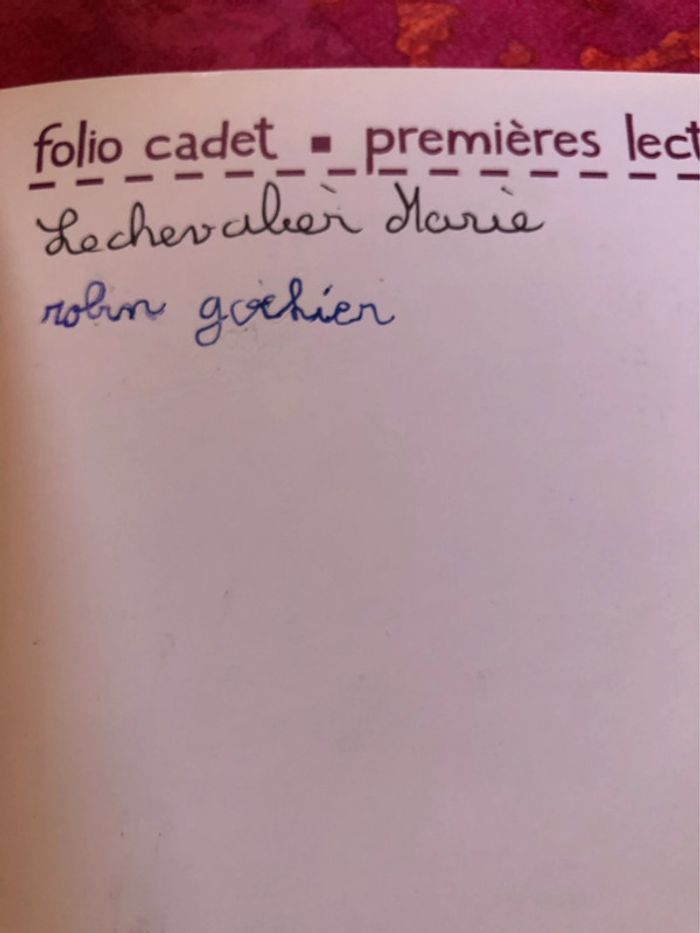 folio cadet ▪ premières lect
Lechevalier Marie
robin gochier